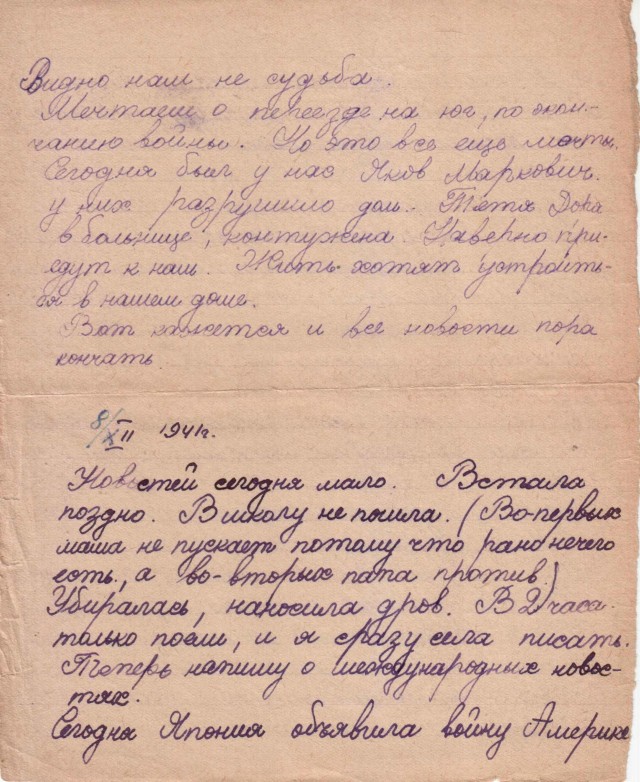 Видно нам не судьба.
Мечтаем о переезде на юг, по окон-
чанию войны. Но это все еще мечты.
Сегодня был у нас Яков Маркович.
у них разрушило дом. Тетя Дора
в больнице, контужена. Наверно при-
едут к нам. Жить хотят устроить-
ся в нашем доме.
Вот кажется и все новости пора
кончать
8/XII 1941г.
Новостей сегодня мало. Встала
поздно. В школу не пошла. (Во-первых
мама не пускает потому что рано нечего
есть, а во-вторых папа против.)
Убиралась, наносила дров. В 2 часа
только поели, и я сразу села писать.
Теперь напишу о международных новос-
тях.
Сегодня Япония объявила войну Америке